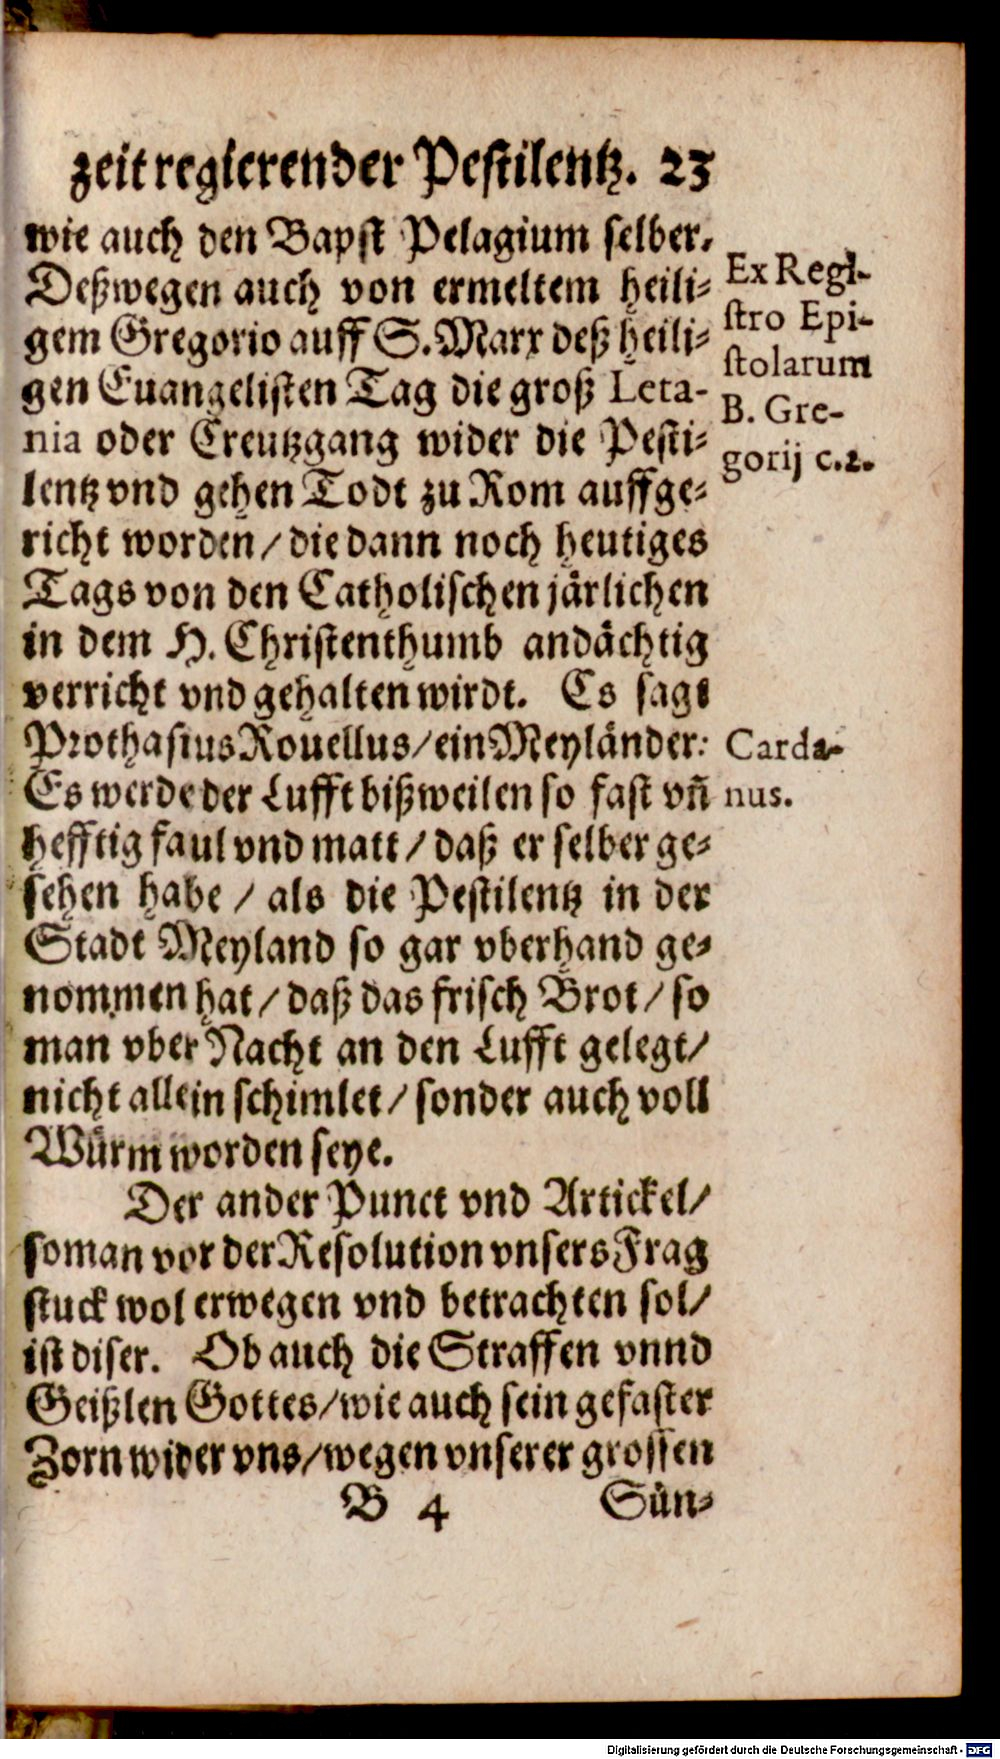 zeit regierender Pestilentz. 23
wie auch den Bapst Pelagium selber.
Deßwegen auch von ermeltem heili-
gem Gregorio auff S. Marx deß heili-
gen Euangelisten Tag die groß Leta-
nia oder Creutzgang wider die Pesti-
lentz vnd gehen Todt zu Rom auffge-
richt worden / die dann noch heutiges
Tags von den Catholischen järlichen
in dem H. Christenthumb andächtig
verricht vnd gehalten wirdt. Es sagt
Prothasius Rouellus / ein Meyländer:
Es werde der Lufft bißweilen so fast vñ
hefftig faul vnd matt / daß er selber ge-
sehen habe / als die Pestilentz in der
Stadt Meyland so gar vberhand ge-
nommen hat / daß das frisch Brot / so
man vber Nacht an den Lufft gelegt /
nicht allein schimlet / sonder auch voll
Würm worden seye.
Der ander Punct vnd Artickel /
so man vor der Resolution vnsers Frag
stuck wol erwegen vnd betrachten sol /
ist diser. Ob auch die Straffen vnnd
Geißlen Gottes / wie auch sein gefaster
Zorn wider vns / wegen vnserer grossen
B 4 Sün-
Ex Regi-
stro Epi-
stolarum
B. Gre-
gorij c.2.
Carda-
nus.
Digitalisierung gefördert durch die Deutsche Forschungsgemeinschaft - DFG